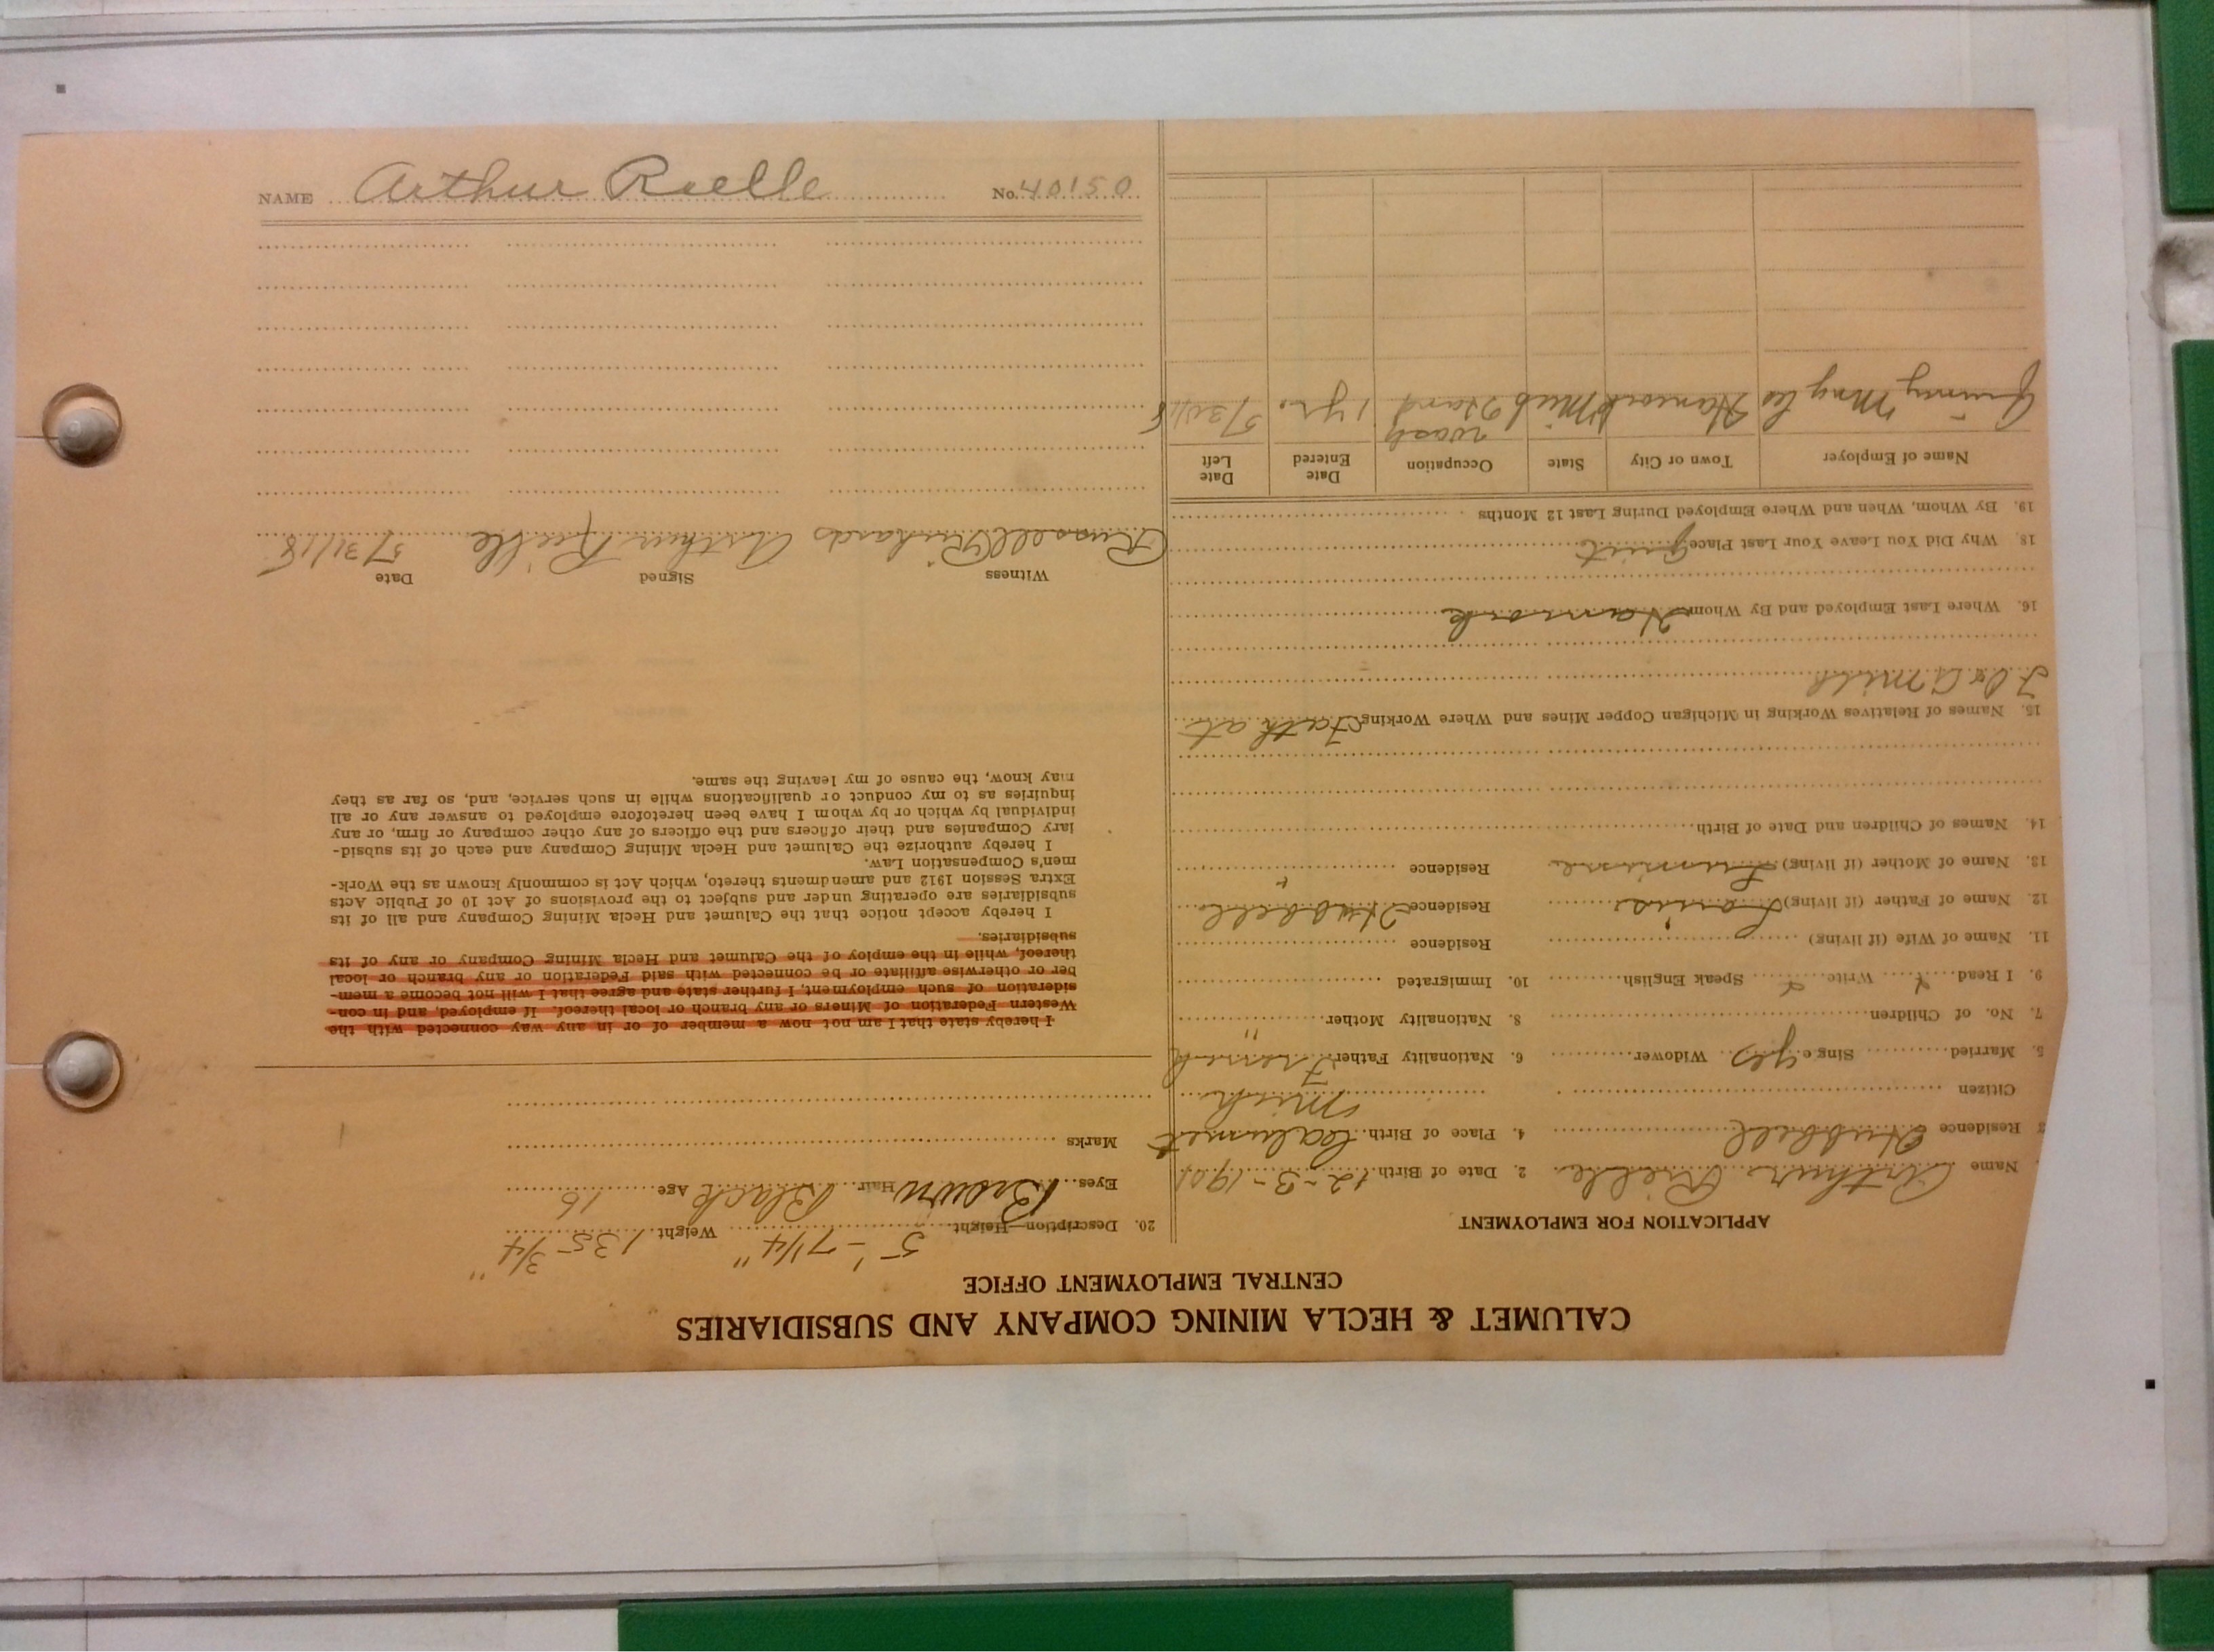 CALUMET & HECLA MINING COMPANY AND SUBSIDIARIES
CENTRAL EMPLOYMENT OFFICE
APPLICATION FOR EMPLOYMENT
Name Arthur Rielle 2. Date of Birth 12-3-1901
3 Residence Hubbell 4. Place of Birth Calumet
Citizen Mich
5. Married Sing e yes Widower 6. Nationality Father French
7. No. of Children 8. Nationality Mother "
9. I Read Write Speak English 10. Immigrated
11. Name of Wife (if living) Residence
12. Name of Father (if living) Louis Residence Hubbell
13. Name of Mother (if living) Residence "
14. Names of Children and Date of Birth
15. Names of Relatives Working in Michigan Copper Mines and Where Working Fath at
Mill
16. Where Last Employed and By Whom Hancock
18. Why Did You Leave Your Last Place quit
19. By Whom, When and Where Employed During Last 12 Months
Name of Employer Town or City State Occupation Date Entered Date Left
Quincy Mng Co Hancock Mich Wash Hand 1 yr. 5/30/18
20. Description—Height 5'-7 1/4" Weight 135 3/4"
Eyes Brown Hair Black Age 16
Marks
I hereby state that I am not now a member of or in any way connected with the
Western Federation of Miners or any branch or local thereof. If employed, and in con-
sideration of such employment, I further state and agree that I will not become a mem-
ber or otherwise affiliate or be connected with said Federation or any branch or local
thereof, while in the employ of the Calumet and Hecla Mining Company or any of its
subsidiaries.
I hereby accept notice that the Calumet and Hecla Mining Company and all of its
subsidiaries are operating under and subject to the provisions of Act 10 of Public Acts
Extra Session 1912 and amendments thereto, which Act is commonly known as the Work-
men's Compensation Law.
I hereby authorize the Calumet and Hecla Mining Company and each of its subsid-
iary Companies and their officers and the officers of any other company or firm, or any
individual by which or by whom I have been heretofore employed to answer any or all
inquiries as to my conduct or qualifications while in such service, and, so far as they
may know, the cause of my leaving the same.
Witness Signed Date
Russell Richards Arthur Rielle 5/31/18
NAME Arthur Rielle No. 40150